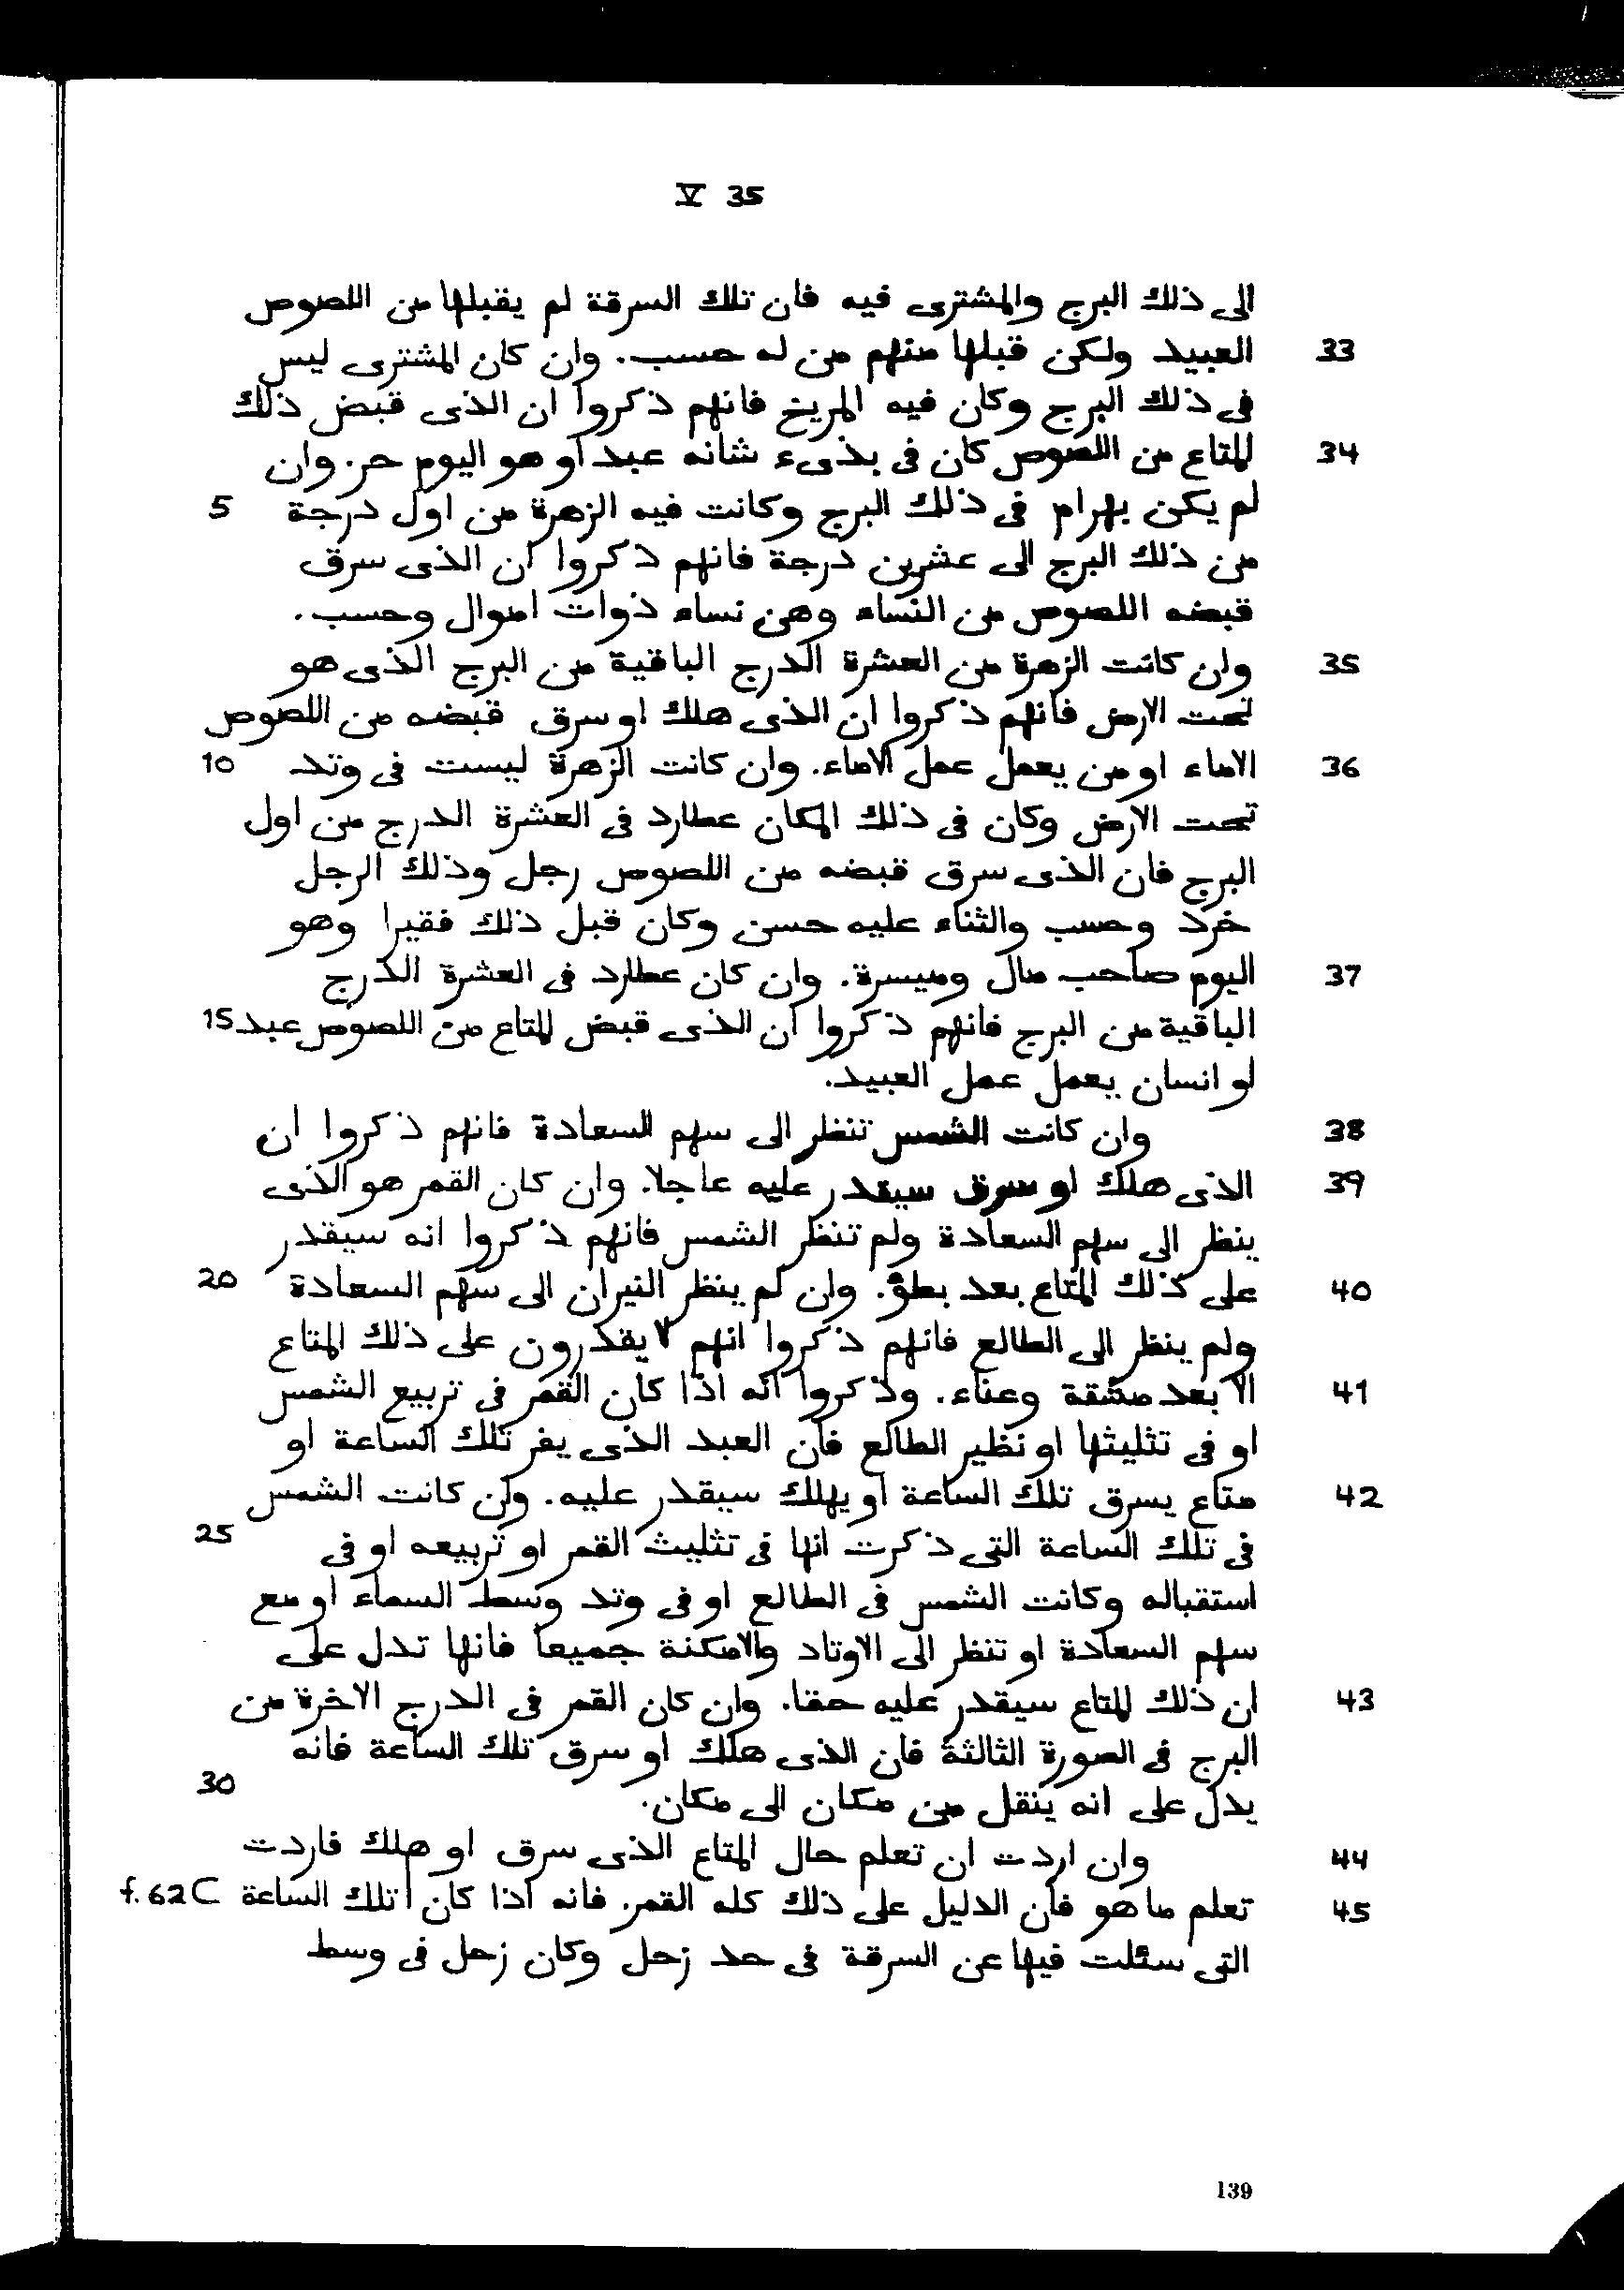 V 35
الى ذلك البرج والمشترى فيه فان تلك السرقة لم يقبلها من اللصوص
33 العبيد ولكن قبلها منهم من له حسب. وان كان المشترى ليس
فى ذلك البرج وكان فيه المريخ فانهم ذكروا ان الذى قبض ذلك
34 المتاع من اللصوص كان فى بذىء شانه عبد او هو اليوم حر. وان
لم يكن بهرام فى ذلك البرج وكانت فيه الزهرة من اول درجة 5
من ذلك البرج الى عشرين درجة فانهم ذكروا ان الذى سرق
قبضه اللصوص من النساء وهن نساء ذوات اموال وحسب.
35 وان كانت الزهرة من العشرة الدرج الباقية من البرج الذى هو
تحت الارض فانهم ذكروا ان الذى هلك او سرق قبضه من اللصوص
36 الاماء او من يعمل عمل الاماء. وان كانت الزهرة ليست فى وتد 10
تحت الارض وكان فى ذلك المكان عطارد فى العشرة الدرج من اول
البرج فان الذى سرق قبضه من اللصوص رجل وذلك الرجل
خرد وحسب والثناء عليه حسن وكان قبل ذلك فقيرا وهو
37 اليوم صاحب مال وميسرة. وان كان عطارد فى العشرة الدرج
الباقية من البرج فانهم ذكروا ان الذى قبض المتاع من اللصوص عبد 15
او انسان يعمل عمل العبيد.
38 وان كانت الشمس تنظر الى سهم السعادة فانهم ذكروا ان
39 الذى هلك او سرق سيقدر عليه عاجلا. وان كان القمر هو الذى
ينظر الى سهم السعادة ولم تنظر الشمس فانهم ذكروا انه سيقدر
40 على ذلك المتاع بعد بطؤ. وان لم ينظر النيران الى سهم السعادة 20
ولم ينظر الى الطالع فانهم ذكروا انهم لا يقدرون على ذلك المتاع
41 الا بعد مشقة وعناء. وذكروا انه اذا كان القمر فى تربيع الشمس
او فى تثليثها او نظير الطالع فان العبد الذى يفر تلك الساعة او
42 متاع يسرق تلك الساعة او يهلك سيقدر عليه. وان كانت الشمس
فى تلك الساعة التى ذكرت انها فى تثليث القمر او تربيعه او فى 25
استقباله وكانت الشمس فى الطالع او فى وتد وسط السماء او مع
سهم السعادة او تنظر الى الاوتاد والامكنة جميعا فانها تدل على
43 ان ذلك المتاع سيقدر عليه حقا. وان كان القمر فى الدرج الاخرة من
البرج فى الصورة الثالثة فان الذى هلك او سرق تلك الساعة فانه
يدل على انه ينقل من مكان الى مكان. 30
44 وان اردت ان تعلم حال المتاع الذى سرق او هلك فاردت
45 تعلم ما هو فان الدليل على ذلك كله القمر. فانه اذا كان | تلك الساعة f. 62 C
التى سئلت فيها عن السرقة فى حد زحل وكان زحل فى وسط
139